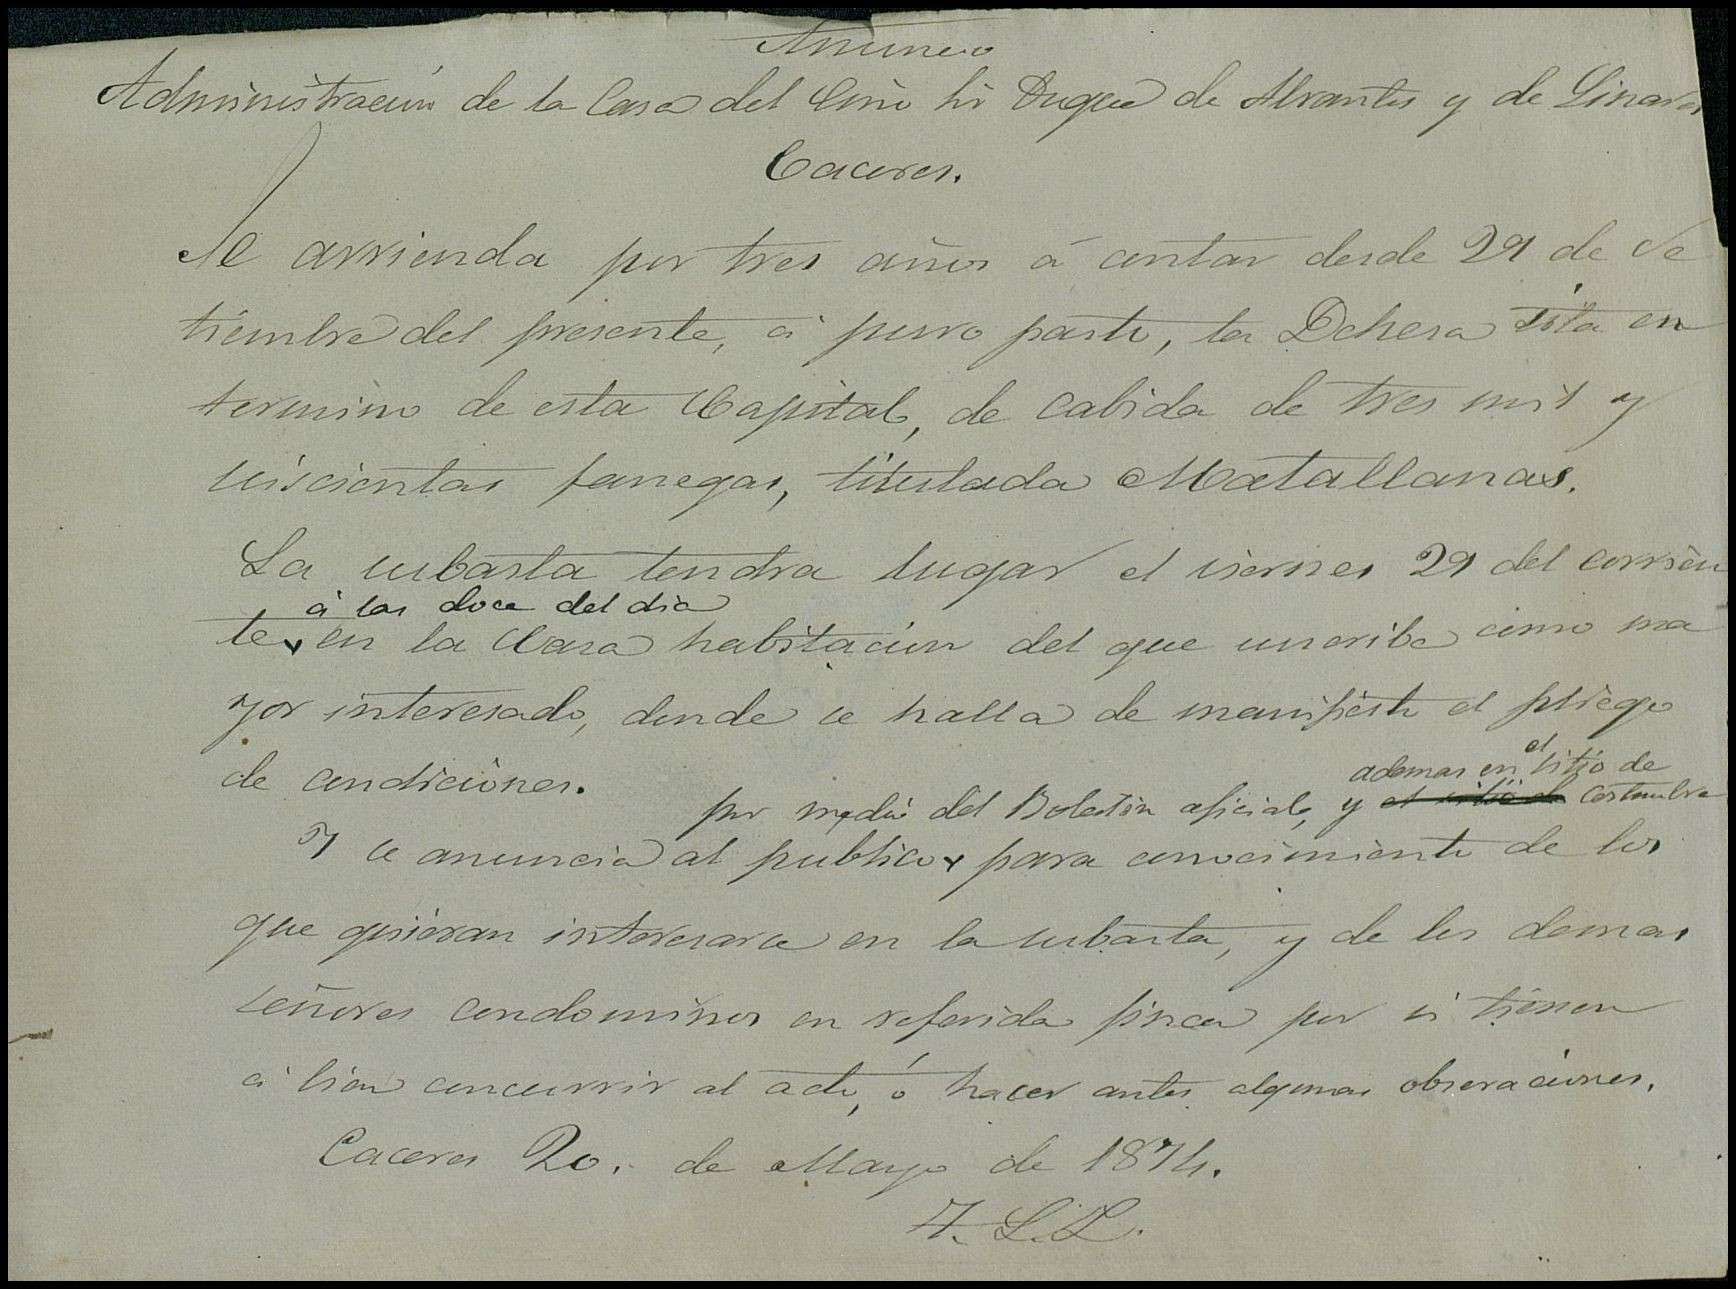 Anuncio
Administración de la Casa del Exmo Sr Duque de Abrantes y de Linares
Caceres.
Se arrienda por tres años á contar desde 29 de Se
tiembre del presente, á puro pasto, la Dehesa sita en
termino de esta Capital, de cabida de tres mil y
seiscientas fanegas, titulada Matallanas.
La subasta tendra lugar el viernes 29 del corrien
á las doce del dia
te, en la Casa habitacion del que suscribe como ma
yor interesado, donde se halla de manifiesto el pliego
de condiciones.
ademas en el sitio de
por medio del Boletin oficial, y el sitio de costumbre
Y se anuncia al publico para conocimiento de los
que quieran interesarse en la subasta, y de los demas
señores condominos en referida finca por si tienen
á bien concurrir al acto, ó hacer antes algunas obseraciones.
Caceres 20. de Mayo de 1874.
L.L.